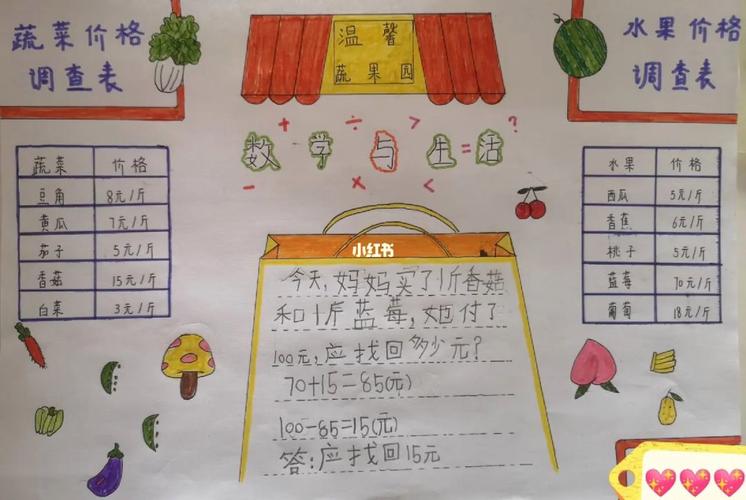 蔬菜价格
调查表
温馨
蔬果园
水果价格
调查表
+ ÷ > ?
数学与生活
=
- × <
蔬菜 价格
豆角 8元/斤
黄瓜 7元/斤
茄子 5元/斤
香菇 15元/斤
白菜 3元/斤
水果 价格
西瓜 5元/斤
香蕉 6元/斤
桃子 5元/斤
蓝莓 70元/斤
葡萄 18元/斤
小红书
今天,妈妈买了1斤香菇
和1斤蓝莓,她付了
100元,应找回多少元?
70+15=85(元)
100-85=15(元)
答:应找回15元